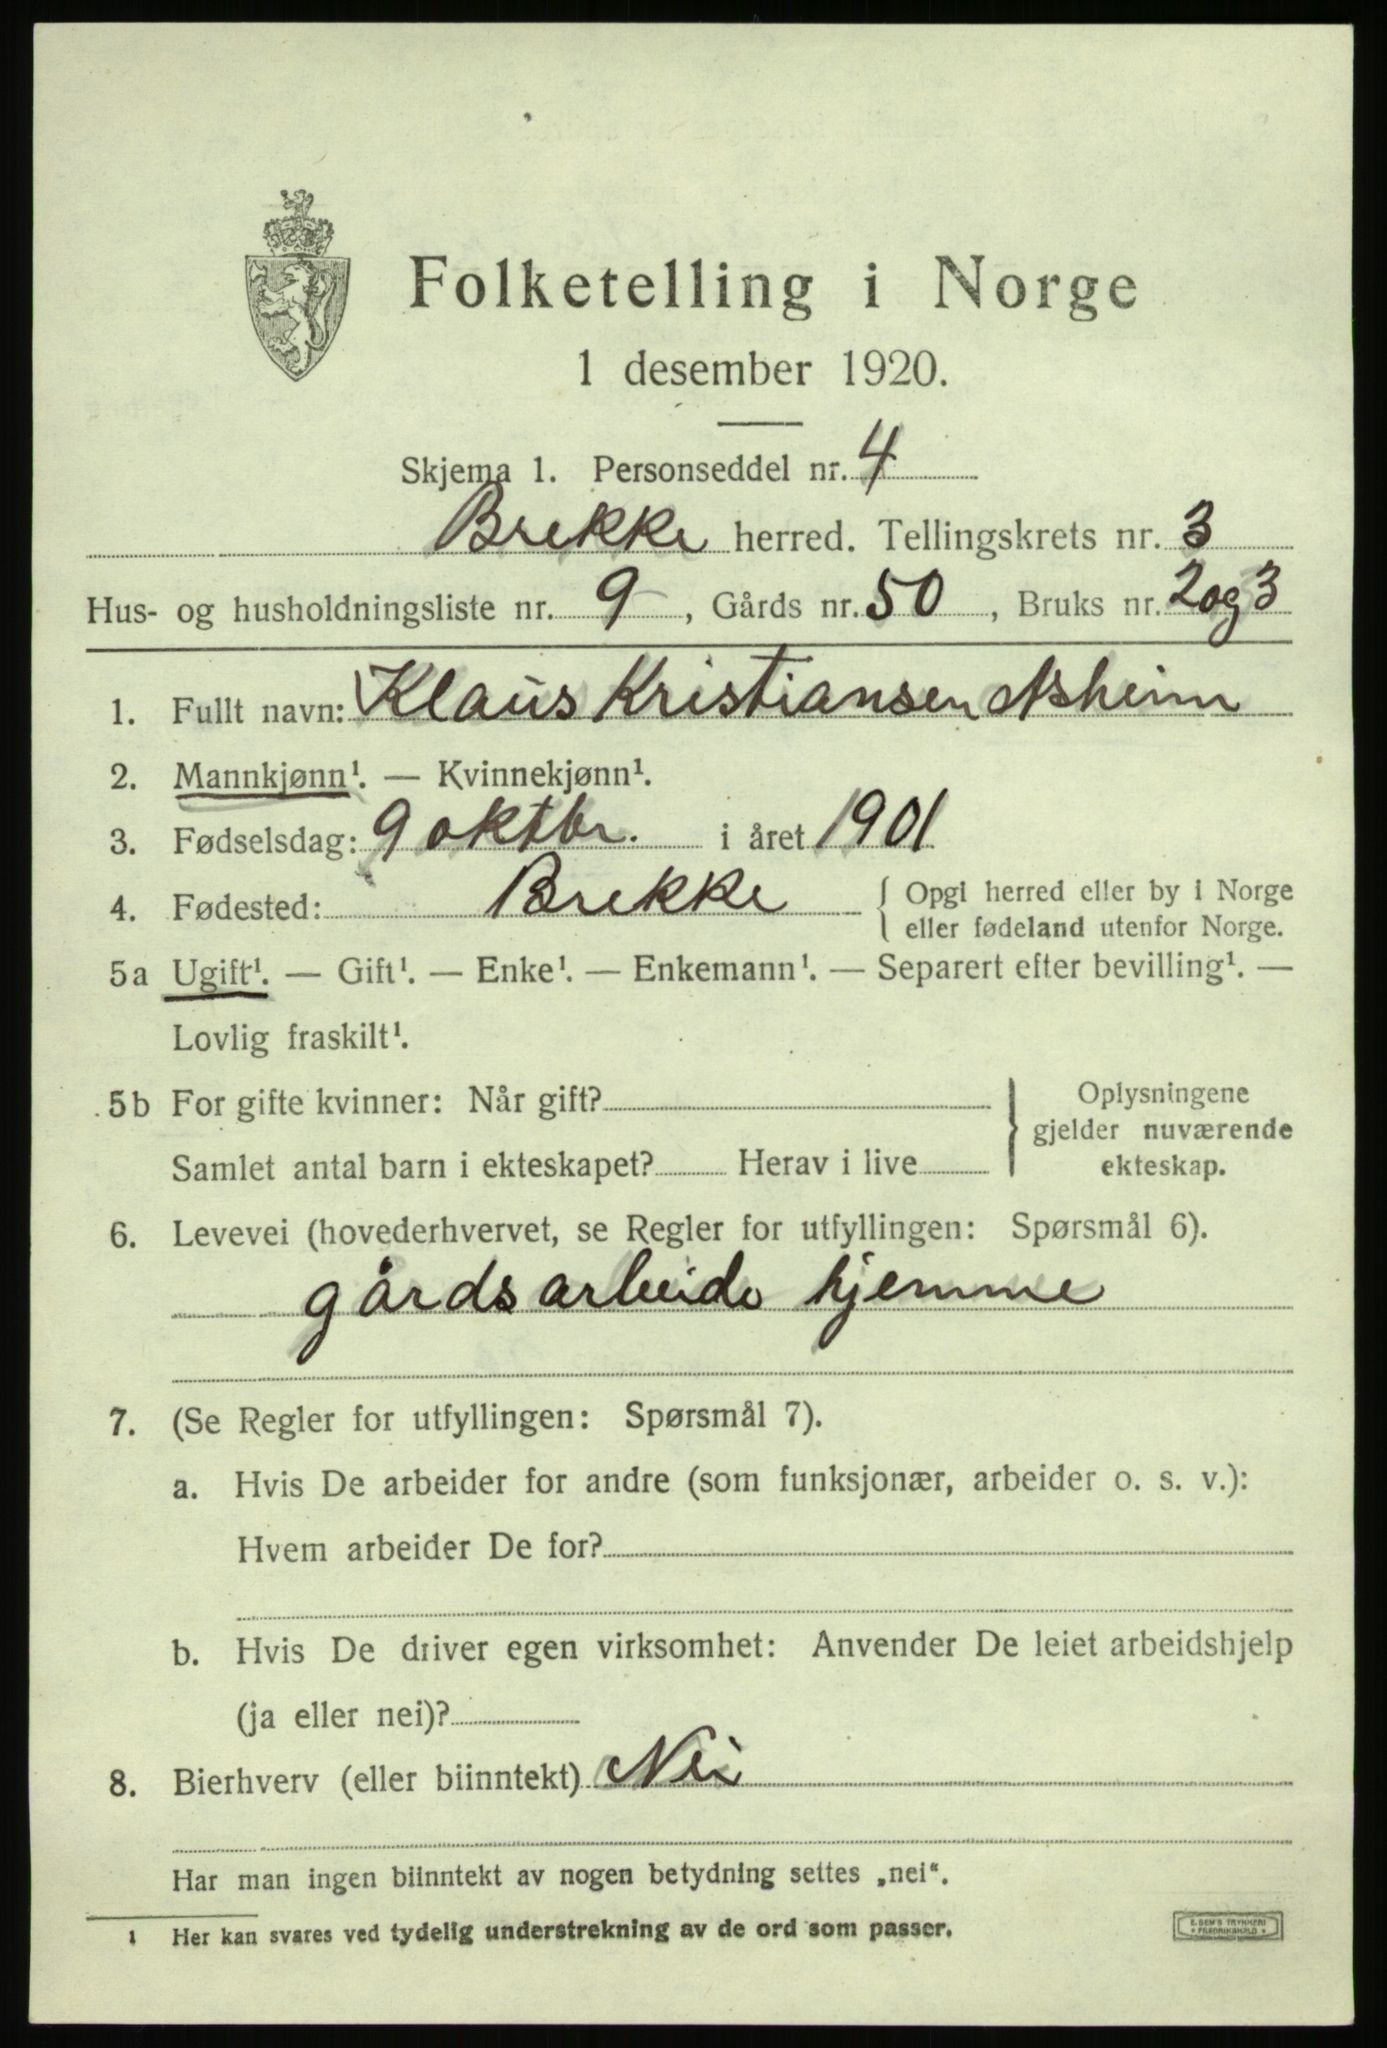 Folketelling i Norge
1 desember 1920.
Skjema 1. Personseddel nr. 4
Brekke herred. Tellingskrets nr. 3
Hus- og husholdningsliste nr. 9, Gårds nr. 50, Bruks nr. 2 og 3
1. Fullt navn: Klaus Kristiansen Asheim
2. Mannkjønn¹. — Kvinnekjønn¹.
3. Fødselsdag: 9 oktbr. i året 1901
4. Fødested: Brekke { Opgi herred eller by i Norge
eller fødeland utenfor Norge.
5a Ugift¹. — Gift¹. — Enke¹. — Enkemann¹. — Separert efter bevilling¹. —
Lovlig fraskilt¹.
5b For gifte kvinner: Når gift?
Samlet antal barn i ekteskapet? Herav i live
} Oplysningene
gjelder nuværende
ekteskap.
6. Levevei (hovederhvervet, se Regler for utfyllingen: Spørsmål 6).
gårdsarbeide hjemme
7. (Se Regler for utfyllingen: Spørsmål 7).
a. Hvis De arbeider for andre (som funksjonær, arbeider o. s. v.):
Hvem arbeider De for?
b. Hvis De driver egen virksomhet: Anvender De leiet arbeidshjelp
(ja eller nei)?
8. Bierhverv (eller biinntekt) Nei
Har man ingen biinntekt av nogen betydning settes „nei“.
1 Her kan svares ved tydelig understrekning av de ord som passer.
E. SEM'S TRYKKERI
FREDRIKSHALD